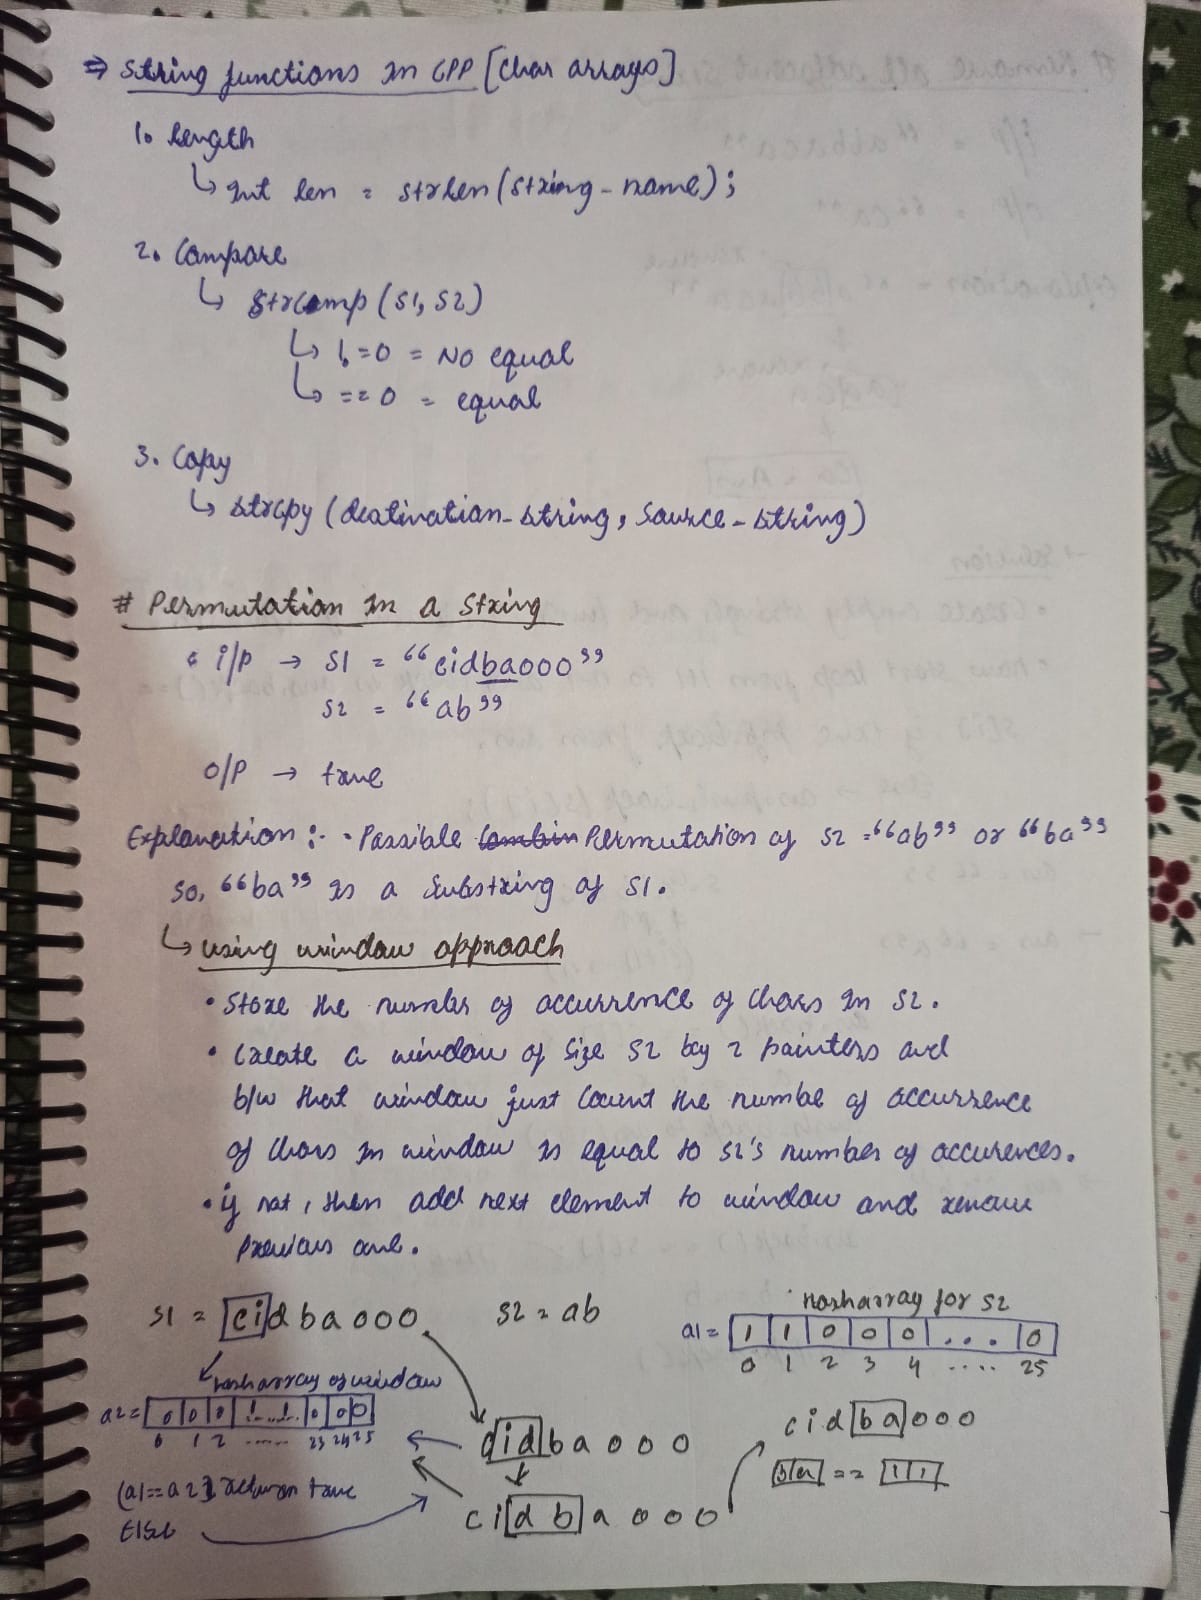 ⇒ String functions in CPP [Char arrays]
1. length
↳ int len = strlen(string-name);
2. Compare
↳ strcmp (S1, S2)
↳ != 0 = No equal
↳ == 0 = equal
3. Copy
↳ strcpy (destination-string, source-string)
# Permutation in a String
i/p → S1 = "cidbaooo"
S2 = "ab"
o/p → true
Explanation :- • Possible Permutation of S2 = "ab" or "ba"
so, "ba" is a substring of S1.
↳ using window approach
• Store the number of occurrence of chars in S2.
• Create a window of size S2 by 2 pointers and
b/w that window just count the numbe of occurrence
of chars in window is equal to S2's number of occurences.
• if not, then add next element to window and remove
previous one.
S1 = cidbaooo S2 = ab
hasharray for S2
a1 = 1 1 0 0 0 . . . 0
0 1 2 3 4 ..... 25
hasharray of window
a2 =
0 1 2 ...... 23 24 25
cidbaooo
cidbaooo
== 1 1
(a1 == a2) return true
Else
cidbaooo